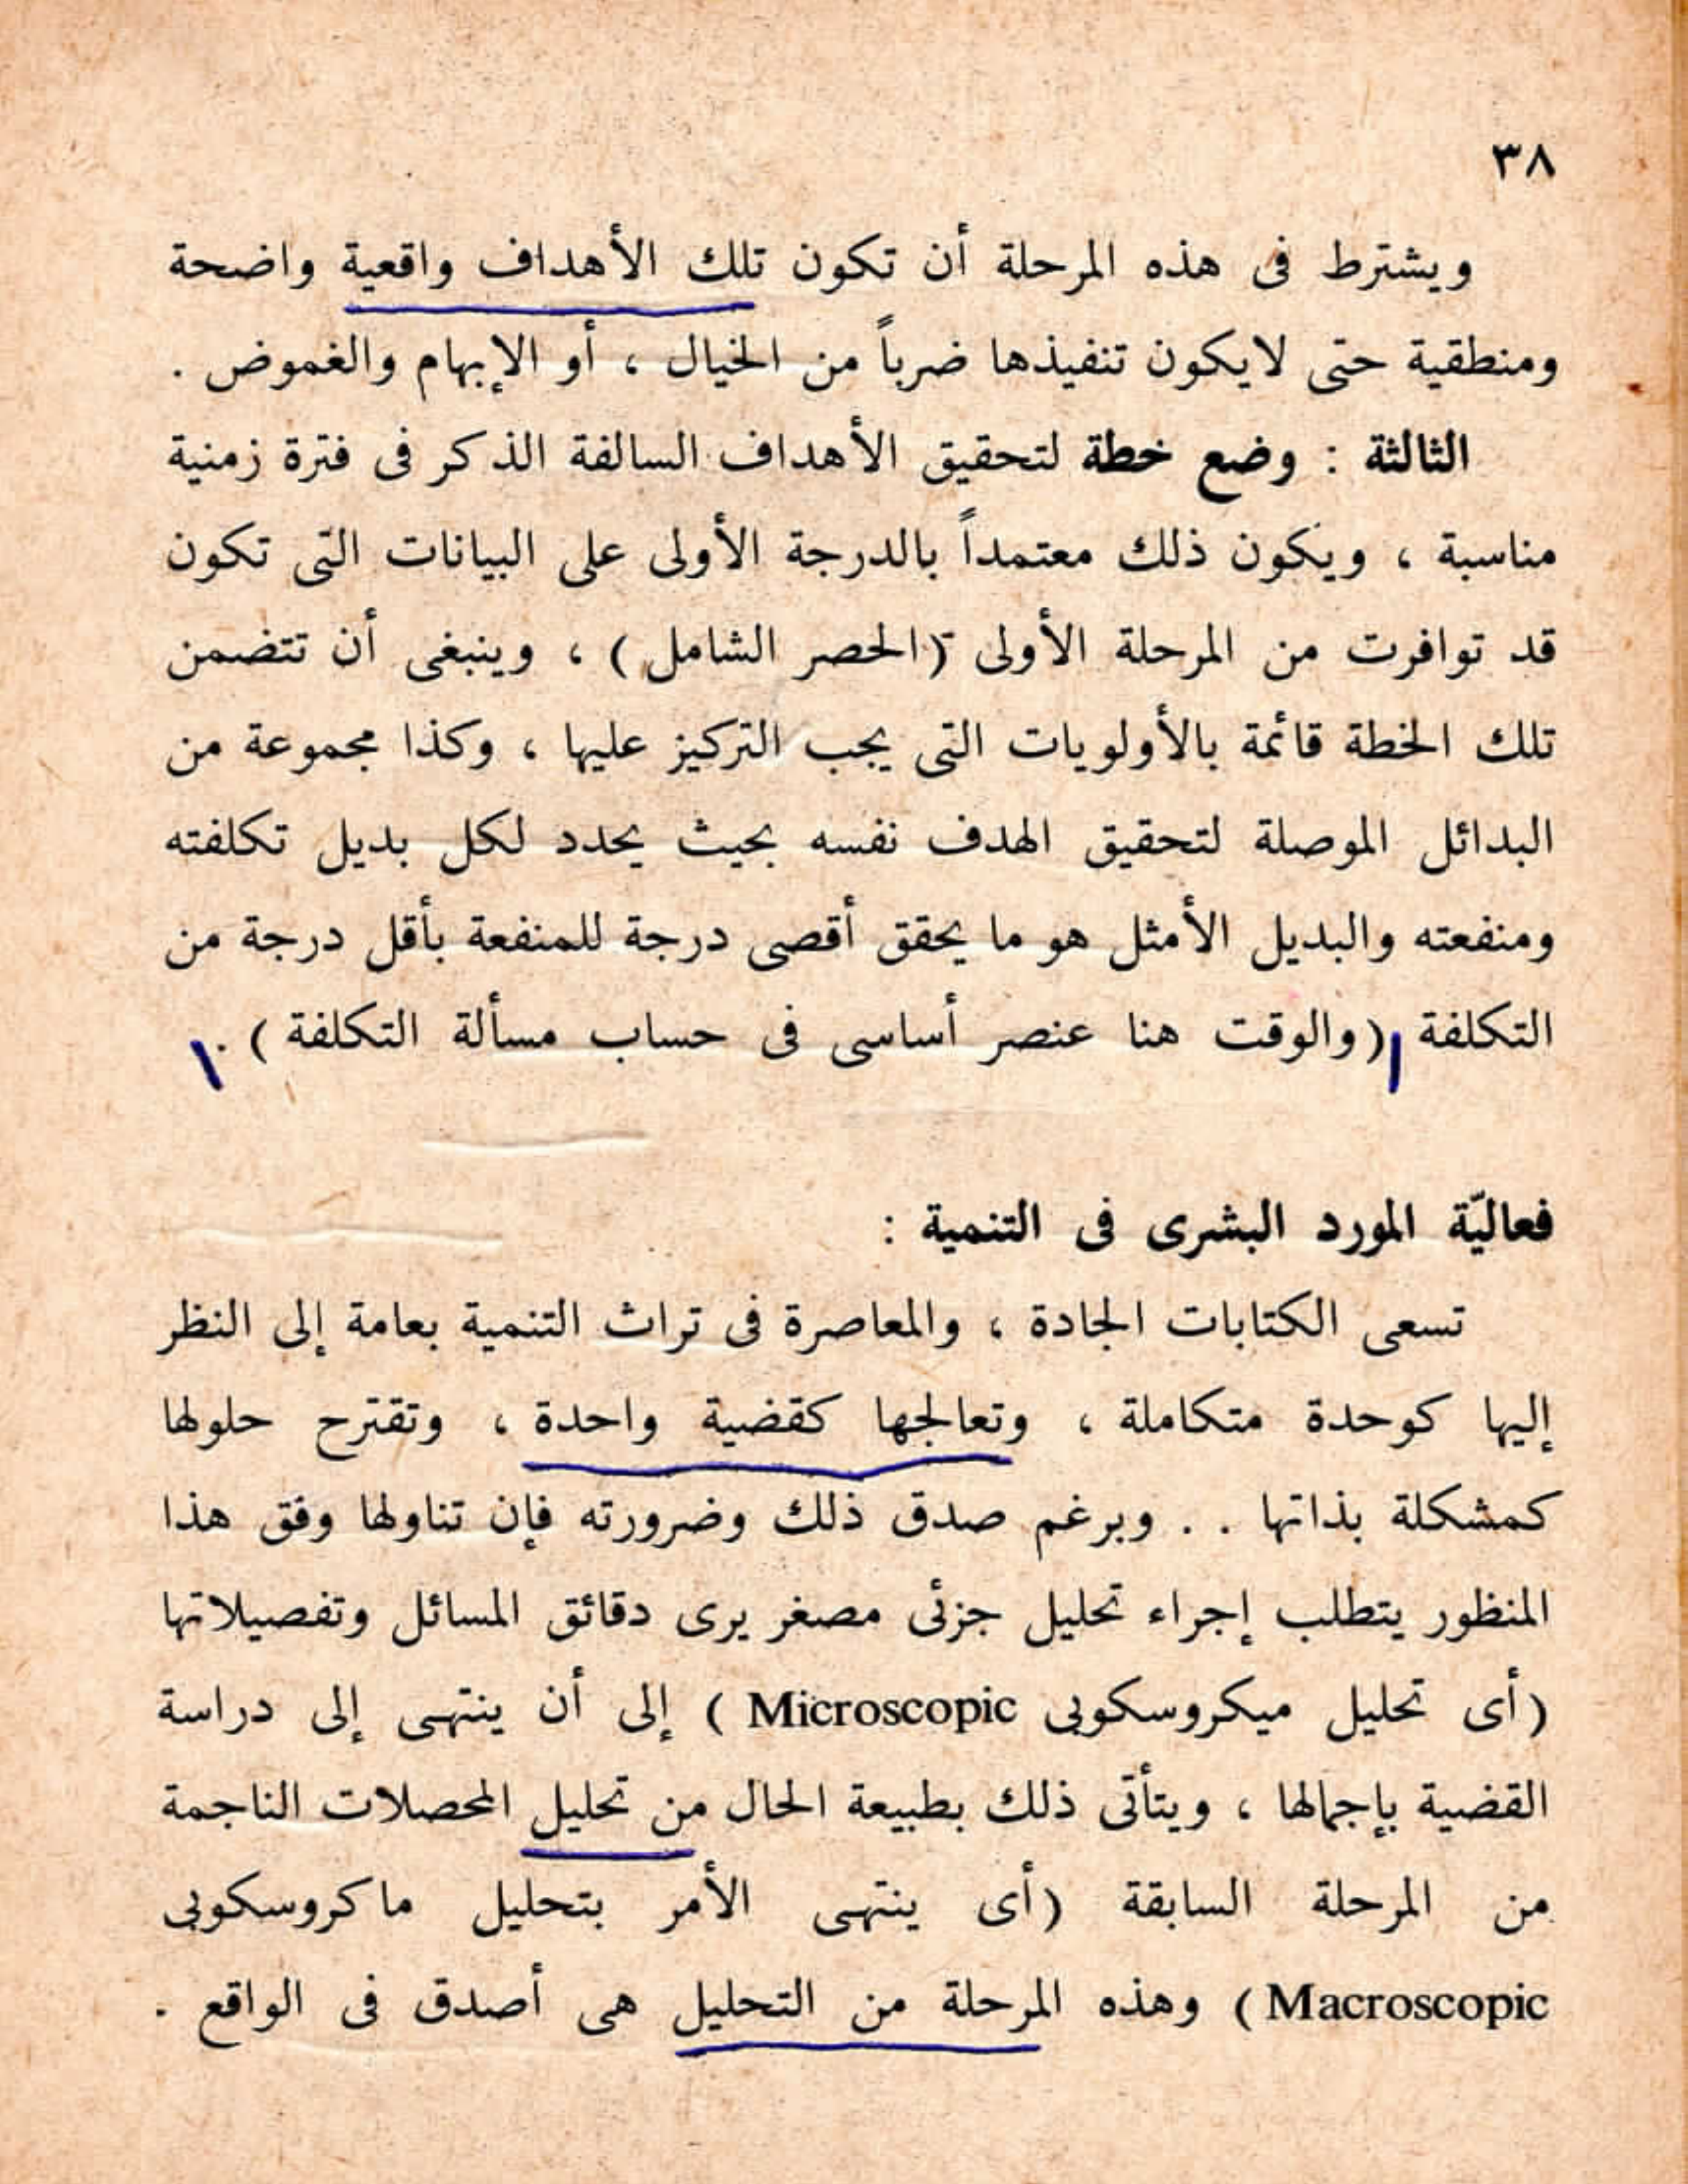 ٣٨
ويشترط فى هذه المرحلة أن تكون تلك الأهداف واقعية واضحة
ومنطقية حتى لايكون تنفيذها ضرباً من الخيال ، أو الإبهام والغموض .
الثالثة : وضع خطة لتحقيق الأهداف السالفة الذكر فى فترة زمنية
مناسبة ، ويكون ذلك معتمداً بالدرجة الأولى على البيانات التى تكون
قد توافرت من المرحلة الأولى (الحصر الشامل) ، وينبغى أن تتضمن
تلك الخطة قائمة بالأولويات التى يجب التركيز عليها ، وكذا مجموعة من
البدائل الموصلة لتحقيق الهدف نفسه بحيث يحدد لكل بديل تكلفته
ومنفعته والبديل الأمثل هو ما يحقق أقصى درجة للمنفعة بأقل درجة من
التكلفة (والوقت هنا عنصر أساسى فى حساب مسألة التكلفة) .
فعاليّة المورد البشرى فى التنمية :
تسعى الكتابات الجادة ، والمعاصرة فى تراث التنمية بعامة إلى النظر
إليها كوحدة متكاملة ، وتعالجها كقضية واحدة ، وتقترح حلولها
كمشكلة بذاتها . . وبرغم صدق ذلك وضرورته فإن تناولها وفق هذا
المنظور يتطلب إجراء تحليل جزئى مصغر يرى دقائق المسائل وتفصيلاتها
(أى تحليل ميكروسكوبى Microscopic ) إلى أن ينتهى إلى دراسة
القضية بإجمالها ، ويتأتى ذلك بطبيعة الحال من تحليل المحصلات الناجمة
من المرحلة السابقة (أى ينتهى الأمر بتحليل ماكروسكوبى
Macroscopic ) وهذه المرحلة من التحليل هى أصدق فى الواقع .